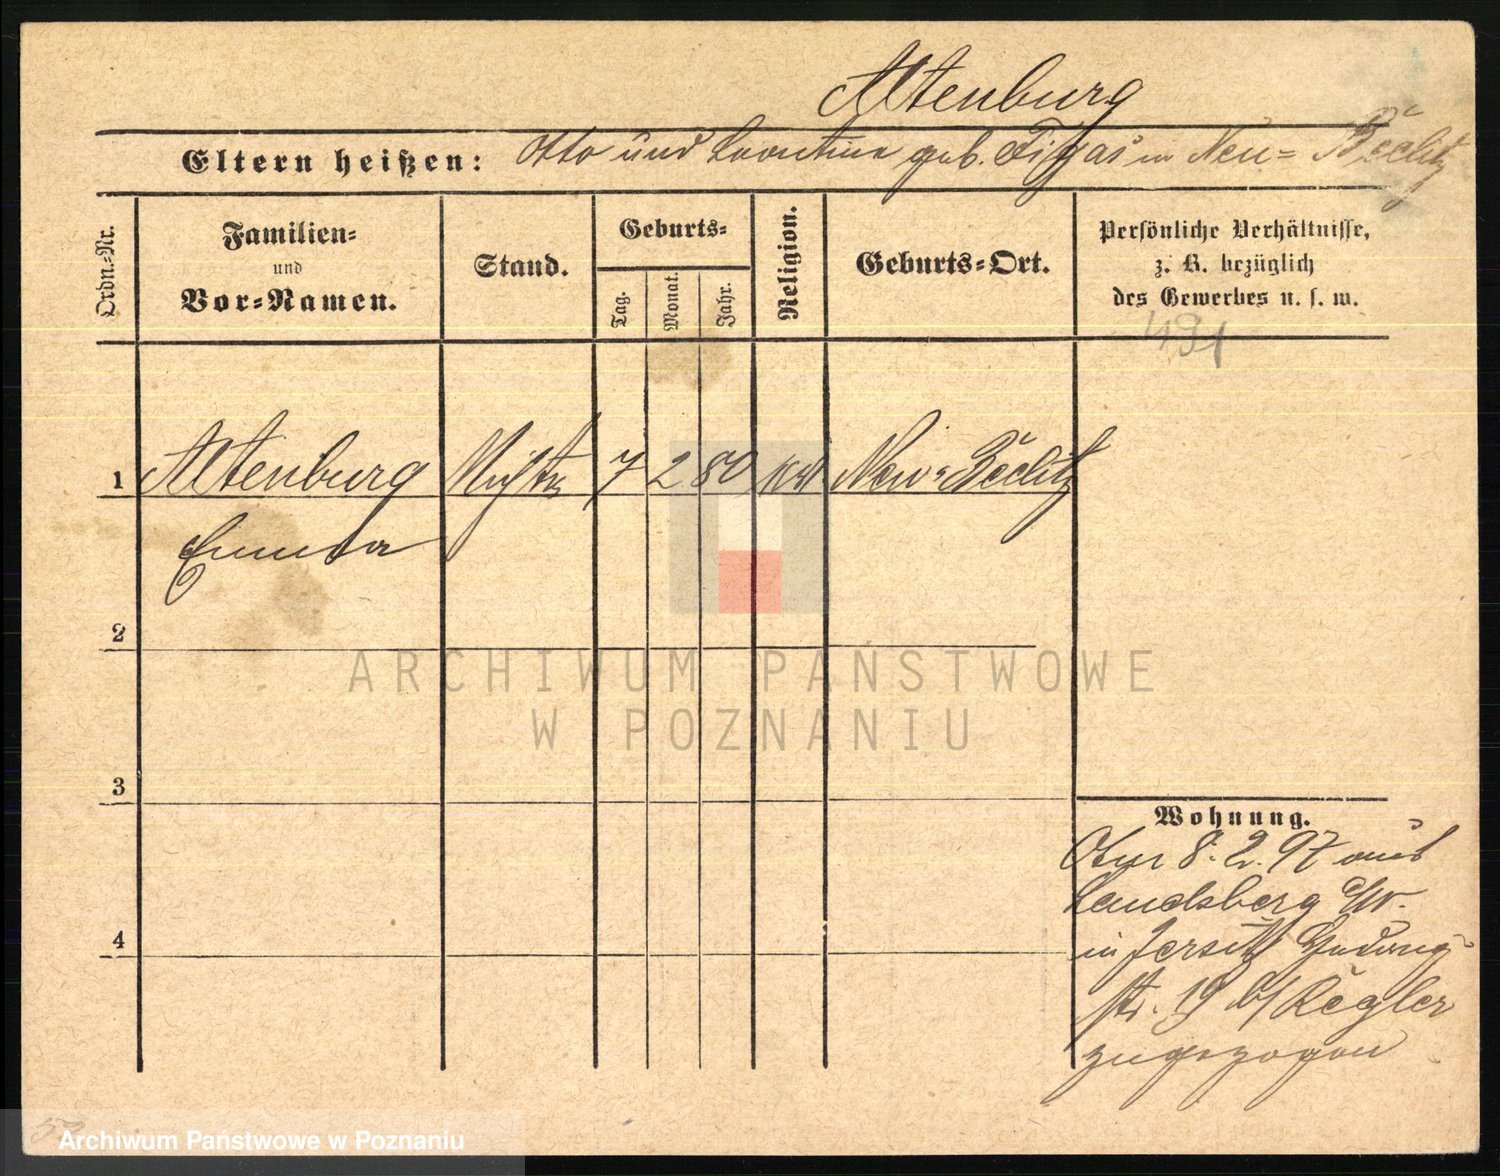 Altenburg
Eltern heißen: Otto und Leontine geb. in Neu-
Ordn.-Nr.
Familien-
und
Vor-Namen.
Stand.
Geburts-
Tag.
Monat.
Jahr.
Religion.
Geburts-Ort.
Persönliche Verhältnisse,
z. B. bezüglich
des Gewerbes u. s. w.
491
1 Altenburg 7 2 80 Neu-
Emma
2
ARCHIWUM PAŃSTWOWE
W POZNANIU
3
Wohnung.
8. 2. 97 aus
Landsberg a/W.
in Jersitz
str. 19 b/ Kegler
zugezogen
4
Archiwum Państwowe w Poznaniu